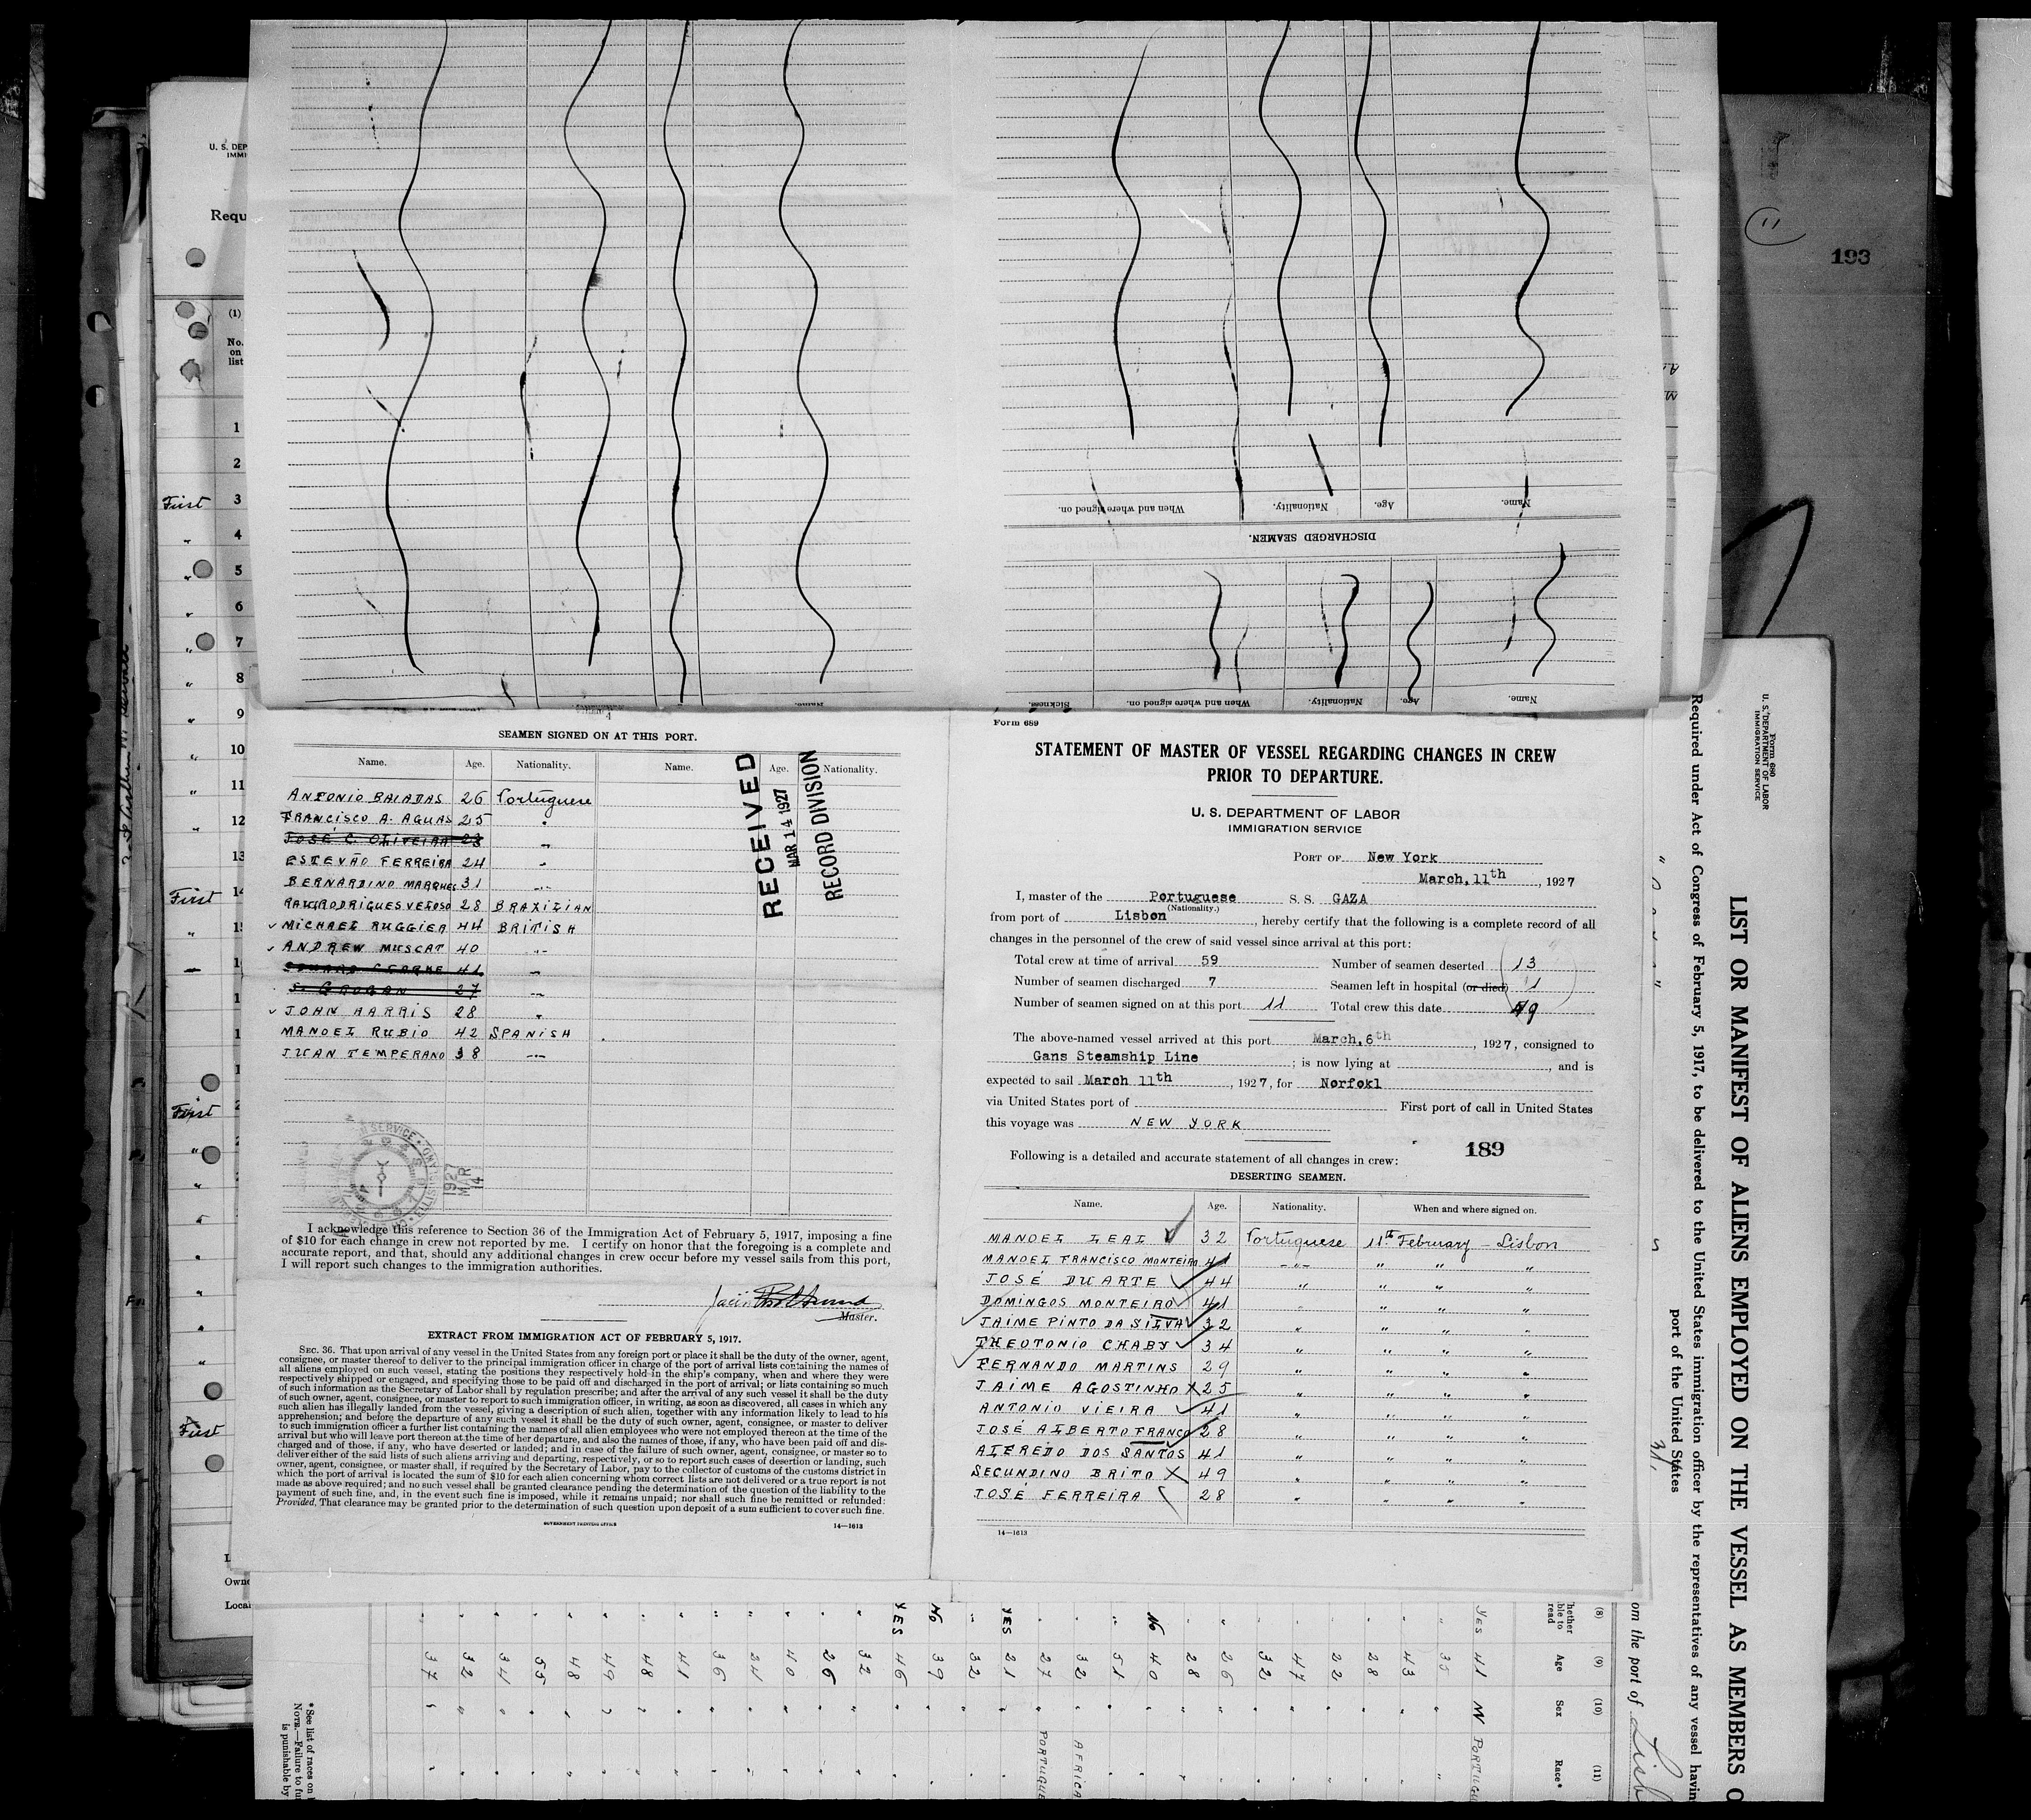 U. S. DEP
IMMI
Requ
(1)
No.
on
list
1
2
First 3
4
5
6
7
8
9
10
11
12
13
First 14
First
First
Owne
Local
11
193
Name.
Age.
Nationality.
When and where signed on.
DISCHARGED SEAMEN.
Name.
Age.
Nationality.
When and where signed on.
Sickness.
SEAMEN SIGNED ON AT THIS PORT.
Name. Age. Nationality. Name. Age. Nationality.
ANTONIO BAIADAS 26 Portuguese
FRANCISCO A. AGUAS 25 "
JOSÉ C. OLIVEIRA 23 "
ESTEVÃO FERREIRA 24 "
BERNARDINO MARQUES 31 "
RAUL RODRIGUES VELOSO 28 BRAZILIAN
MICHAEL RUGGIER 44 BRITISH
ANDREW MUSCAT 40 "
GEORGE 41 "
S. GROGAN 27 "
JOHN HARRIS 28 "
MANOEL RUBIO 42 SPANISH
JUAN TEMPERANO 38 "
RECEIVED
MAR 14 1927
RECORD DIVISION
1927
MAR
14
I acknowledge this reference to Section 36 of the Immigration Act of February 5, 1917, imposing a fine
of $10 for each change in crew not reported by me. I certify on honor that the foregoing is a complete and
accurate report, and that, should any additional changes in crew occur before my vessel sails from this port,
I will report such changes to the immigration authorities.
Master.
EXTRACT FROM IMMIGRATION ACT OF FEBRUARY 5, 1917.
SEC. 36. That upon arrival of any vessel in the United States from any foreign port or place it shall be the duty of the owner, agent,
consignee, or master thereof to deliver to the principal immigration officer in charge of the port of arrival lists containing the names of
all aliens employed on such vessel, stating the positions they respectively hold in the ship's company, when and where they were
respectively shipped or engaged, and specifying those to be paid off and discharged in the port of arrival; or lists containing so much
of such information as the Secretary of Labor shall by regulation prescribe; and after the arrival of any such vessel it shall be the duty
of such owner, agent, consignee, or master to report to such immigration officer, in writing, as soon as discovered, all cases in which any
such alien has illegally landed from the vessel, giving a description of such alien, together with any information likely to lead to his
apprehension; and before the departure of any such vessel it shall be the duty of such owner, agent, consignee, or master to deliver
to such immigration officer a further list containing the names of all alien employees who were not employed thereon at the time of the
arrival but who will leave port thereon at the time of her departure, and also the names of those, if any, who have been paid off and dis-
charged and of those, if any, who have deserted or landed; and in case of the failure of such owner, agent, consignee, or master so to
deliver either of the said lists of such aliens arriving and departing, respectively, or so to report such cases of desertion or landing, such
owner, agent, consignee, or master, shall, if required by the Secretary of Labor, pay to the collector of customs of the customs district in
which the port of arrival is located the sum of $10 for each alien concerning whom correct lists are not delivered or a true report is not
made as above required; and no such vessel shall be granted clearance pending the determination of the question of the liability to the
payment of such fine, and, in the event such fine is imposed, while it remains unpaid; nor shall such fine be remitted or refunded:
Provided, That clearance may be granted prior to the determination of such question upon deposit of a sum sufficient to cover such fine.
GOVERNMENT PRINTING OFFICE 14—1613
Form 689
STATEMENT OF MASTER OF VESSEL REGARDING CHANGES IN CREW
PRIOR TO DEPARTURE.
U. S. DEPARTMENT OF LABOR
IMMIGRATION SERVICE
PORT OF New York
March, 11th, 1927
I, master of the Portuguese S. S. GAZA
(Nationality.)
from port of Lisbon, hereby certify that the following is a complete record of all
changes in the personnel of the crew of said vessel since arrival at this port:
Total crew at time of arrival 59 Number of seamen deserted 13
Number of seamen discharged 7 Seamen left in hospital (or died) 1
Number of seamen signed on at this port 11 Total crew this date 49
The above-named vessel arrived at this port March, 6th, 1927, consigned to
Gans Steamship Line; is now lying at , and is
expected to sail March 11th, 1927, for Norfokl
via United States port of First port of call in United States
this voyage was NEW YORK
189
Following is a detailed and accurate statement of all changes in crew:
DESERTING SEAMEN.
Name. Age. Nationality. When and where signed on.
MANOEL LEAL 32 Portuguese 11th February – Lisbon
MANOEL FRANCISCO MONTEIRO 41 " " " "
JOSÉ DUARTE 44 " " " "
DOMINGOS MONTEIRO 41 " " " "
JAIME PINTO DA SILVA 32 " " " "
THEOTONIO CHABY 34 " " " "
FERNANDO MARTINS 29 " " " "
JAIME AGOSTINHO X 25 " " " "
ANTONIO VIEIRA 41 " " " "
JOSÉ ALBERTO FRANCO 28 " " " "
ALFREDO DOS SANTOS 41 " " " "
SECUNDINO BRITO X 49 " " " "
JOSÉ FERREIRA 28 " " " "
14—1613
Form 680
U. S. DEPARTMENT OF LABOR
IMMIGRATION SERVICE
LIST OR MANIFEST OF ALIENS EMPLOYED ON THE VESSEL AS MEMBERS O
Required under Act of Congress of February 5, 1917, to be delivered to the United States immigration officer by the representatives of any vessel havin
port of the United States
om the port of Lisb
(8) (9) (10) (11)
hether
ble to
read
Age
Sex
Race*
YES 41 M PORTUGU
35
43
28
22
47
32
26
28
No 40
51
32 AFRICA
27 PORTUGUE
YES 21
32
No 39
YES 46
32
26
40
24
36
41
48
49
48
55
34
32
37
* See list of races on
NOTE.—Failure to fu
is punishable by